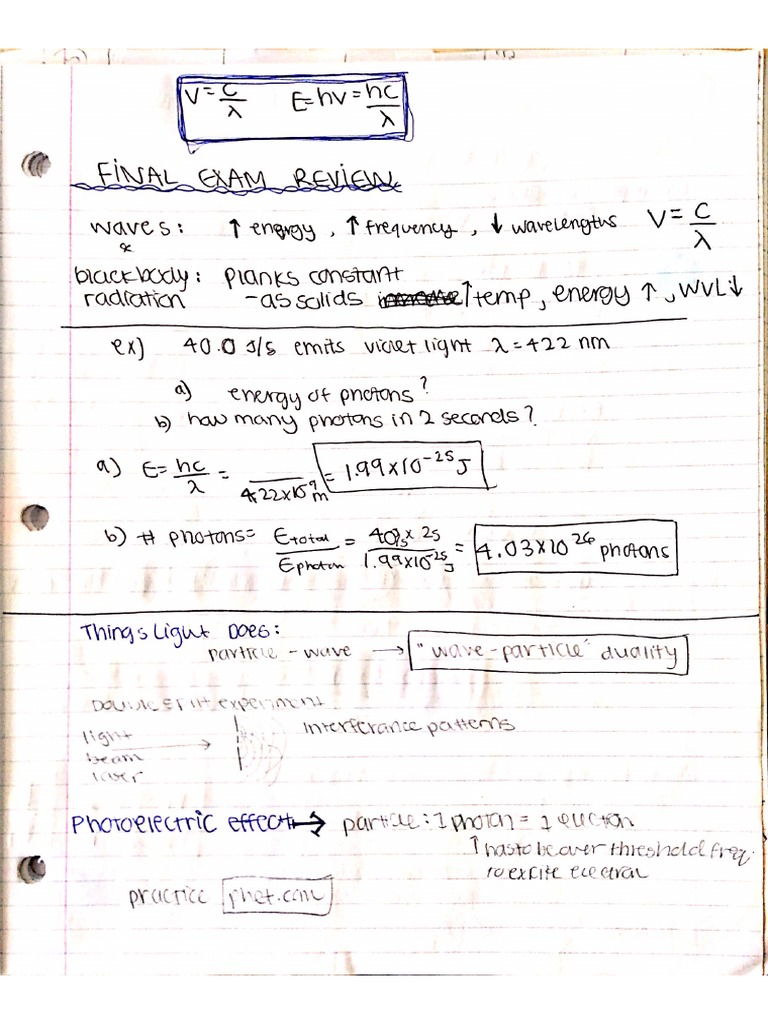 V = c/λ E = hv = hc/λ
FINAL EXAM REVIEW
waves: ↑ energy, ↑ frequency, ↓ wavelengths V = c/λ
&
blackbody: planks constant
radiation - as solids ↑ temp, energy ↑, WVL ↓
ex) 40.0 J/s emits violet light λ = 422 nm
a) energy of photons?
b) how many photons in 2 seconds?
a) E = hc/λ = /422x10⁻⁹m = 1.99x10⁻²⁵ J
b) # photons = Etotal/Ephoton = 40 J/s x 2s/1.99x10⁻²⁵J = 4.03x10²⁶ photons
Things Light Does:
particle - wave → "wave-particle" duality
Double slit experiment
light interferance patterns
beam
Photoelectric effect → particle: 1 photon = 1 electron
↑ has to be over threshold freq.
to excite electron
practice phet.com